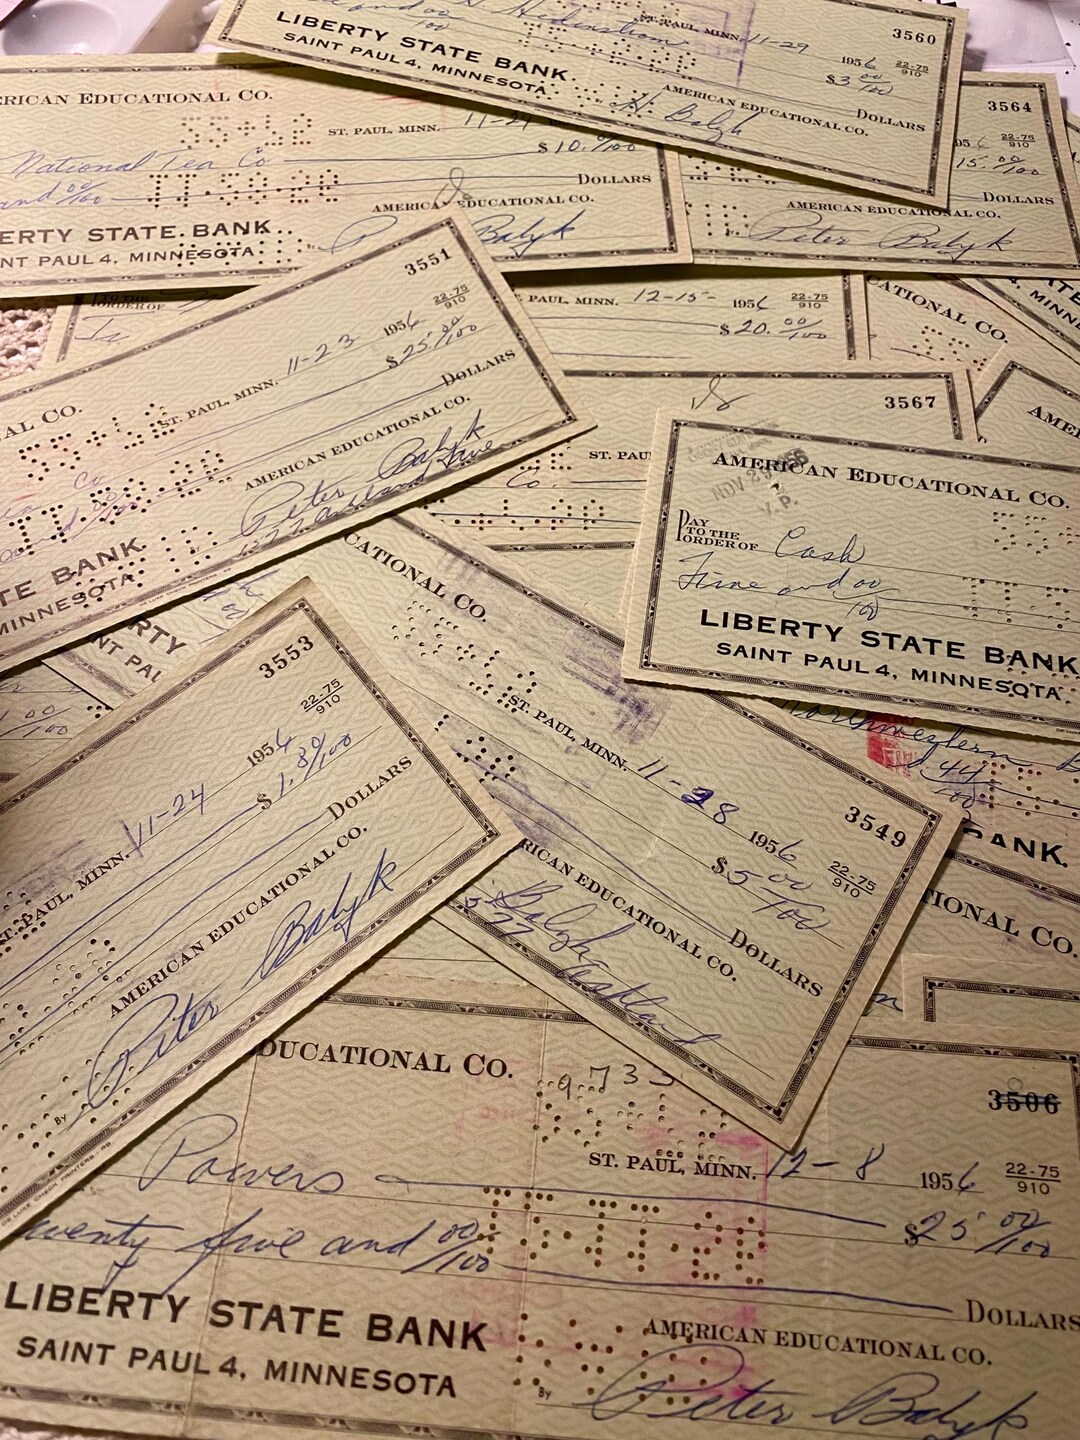 ST. PAUL, MINN. 11-29
3560
1956 22-75
910
$3 00/100
DOLLARS
LIBERTY STATE BANK.
SAINT PAUL 4, MINNESOTA
AMERICAN EDUCATIONAL CO.
ERICAN EDUCATIONAL CO.
ST. PAUL, MINN.
National Tea Co
$10.00/100
and 00/100
DOLLARS
ERTY STATE BANK
NT PAUL 4, MINNESOTA
AMERICAN EDUCATIONAL CO.
Balyk
3564
22-75
910
15.00/100
DOLLARS
AMERICAN EDUCATIONAL CO.
Peter Balyk
3551
AL CO.
ST. PAUL, MINN. 11-23 1956 22-75
910
Co
$25.00/100
DOLLARS
TE BANK
MINNESOTA
AMERICAN EDUCATIONAL CO.
Peter Balyk
ORDER OF
PAUL, MINN. 12-15- 1956 22-75
910
$20.00/100
CATIONAL CO.
MINN
3567
ST. PAU
Co.
AME
AMERICAN EDUCATIONAL CO.
NOV 29 1956
PAY
TO THE
ORDER OF Cash
Five and 00/100
LIBERTY STATE BANK
SAINT PAUL 4, MINNESOTA
RTY
NT PAU
3553
ST. PAUL, MINN. 11-24 1956 22-75
910
$1.80/100
DOLLARS
AMERICAN EDUCATIONAL CO.
By Peter Balyk
DE LUXE CHECK PRINTERS
CATIONAL CO.
3549
ST. PAUL, MINN. 11-28 1956 22-75
910
$5 00/100
DOLLARS
RICAN EDUCATIONAL CO.
Balyk
Northwestern B
44/100
BANK.
TIONAL CO.
DUCATIONAL CO.
9733
3506
ST. PAUL, MINN. 12-8 1956 22-75
910
Powers
$25 00/100
wenty five and 00/100
DOLLARS
LIBERTY STATE BANK
SAINT PAUL 4, MINNESOTA
AMERICAN EDUCATIONAL CO.
By Peter Balyk